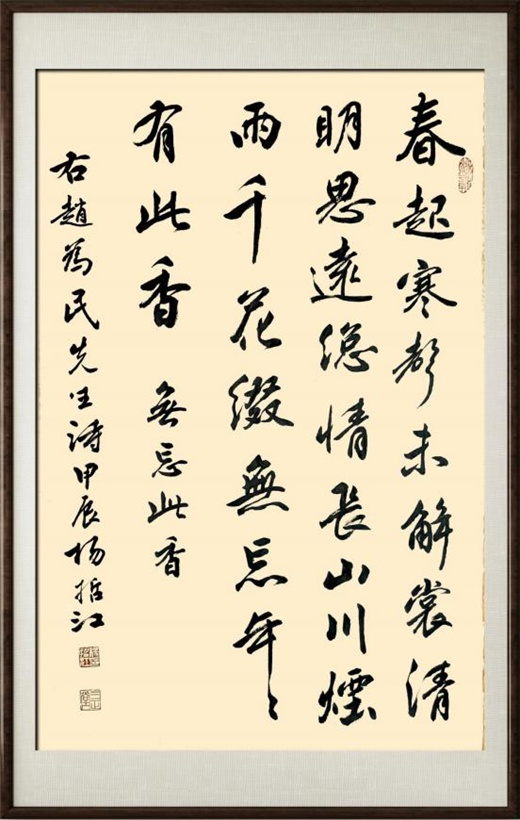 春起寒未解裳清
明思遠緫情長山川煙
雨千花綴無忘年〻
有此香 無忘此香
右趙為民先生詩甲辰楊江